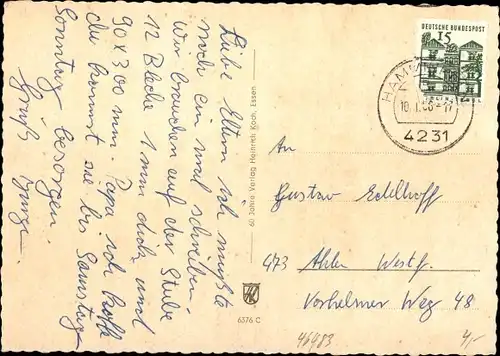 Liebe Eltern ich müßte
mich ein mal schreiben.
Wir brauchen auf der Stube
12 Bleche 1 mm dick und
90 x 300 mm. Papa ich hoffe
du kannst sie bis Samstag
Sonntag besorgen.
Gruß
60 Jahre Verlag Heinrich Koch, Essen
6376 C
DEUTSCHE BUNDESPOST
15
4231
An
Gustav Edelhoff
473 Ahlen Westf.
Vorhelmer Weg 48
46483